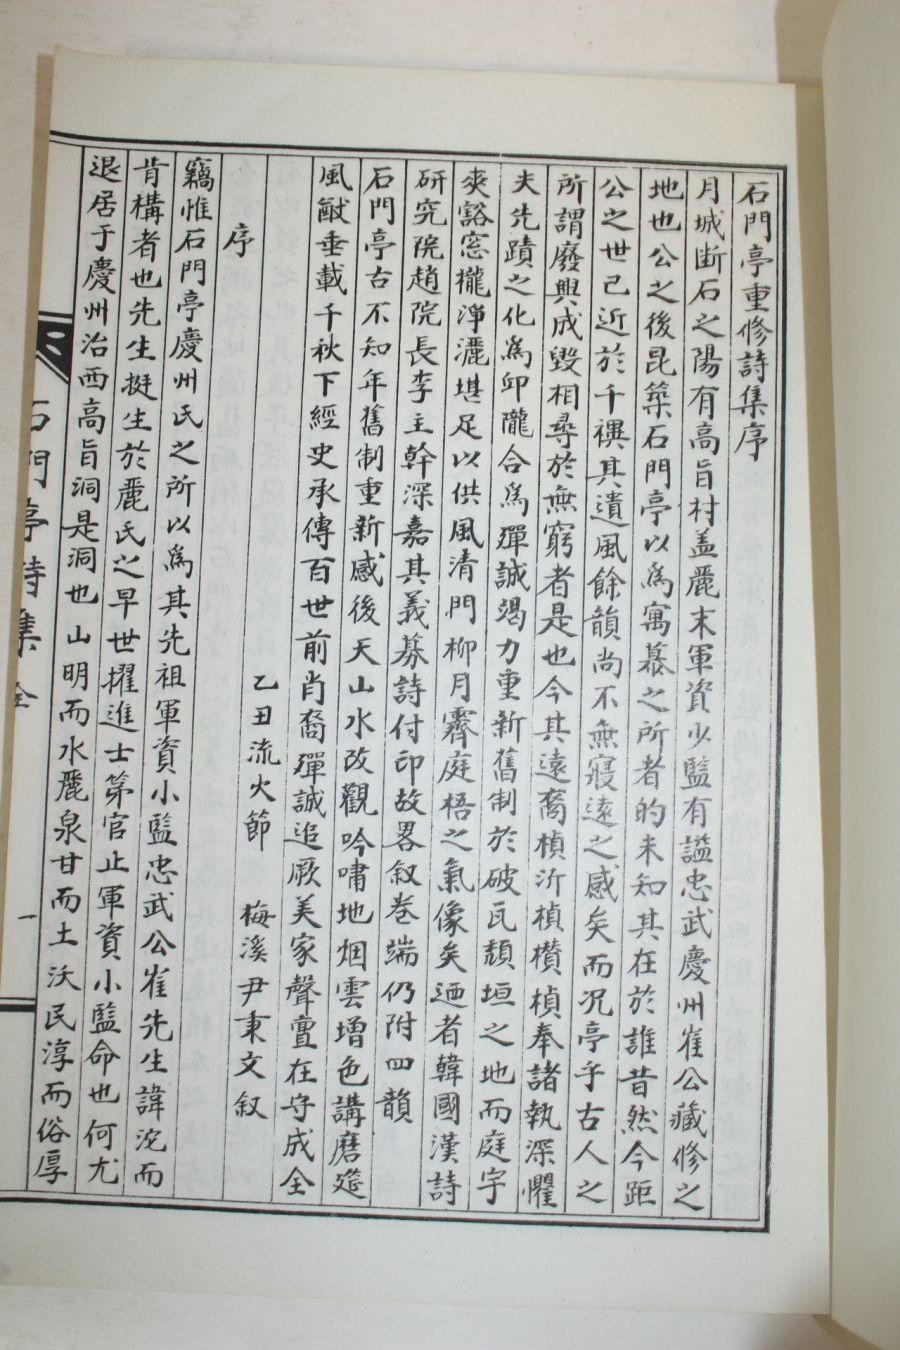 石門亭重修詩集序
月城断石之陽有高旨村盖麗末軍資少監有謚忠武慶州崔公藏修之
地也公之後昆築石門亭以爲寓慕之所者的未知其在於誰昔然今距
公之世已近於千禩其遺風餘韻尚不無寢遠之感矣而况亭乎古人之
所謂廢興成毀相尋於無窮者是也今其遠裔楨沂楨櫕楨奉諸執深懼
夫先蹟之化爲邱隴合爲殫誠竭力重新舊制於破瓦頹垣之地而庭宇
爽豁窓櫳淨灑堪足以供風清門柳月霽庭梧之氣像矣迺者韓國漢詩
研究院趙院長李主幹深嘉其義募詩付印故畧叙卷端仍附四韻
石門亭古不知年舊制重新感後天山水改觀吟嘯地烟雲增色講磨筵
風猷垂載千秋下經史承傳百世前肖裔殫誠追厥美家聲亶在守成全
乙丑流火節 梅溪尹秉文叙
序
竊惟石門亭慶州氏之所以爲其先祖軍資小監忠武公崔先生諱沱而
肯構者也先生挺生於麗氏之早世擢進士第官止軍資小監命也何尤
退居于慶州治西高旨洞是洞也山明而水麗泉甘而土沃民淳而俗厚
石門亭詩集 全
一